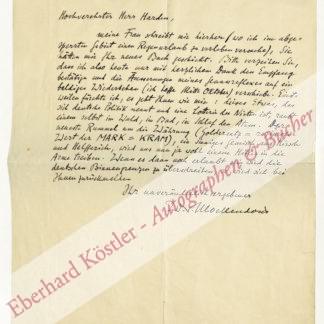 Hochverehrter Herr Harden,
meine Frau schreibt mir hierher (wo ich im abge-
sperrten Gebiet einen Regenurlaub zu verleben versuche), Sie
hätten mir Ihr neues Buch geschickt. Bitte verzeihen Sie,
dass ich also heute nur mit herzlichem Dank den Empfang
bestätige und die Äusserungen meines
baldiges Wiedersehen (ich hoffe Mitte Oktober) verschiebe. Einst-
weilen fürchte ich, es geht Ihnen wie mir: dieses Etwas, das
sich deutsche Politik nennt und eine
einem selbst im Wald, im Bad, im Schlaf den Atem. Der
neueste Rummel um die Währung (Goldmark =
Wortspiel MARK = KRAM), ein
und Helfferich, wird uns nun ja wohl einem in die
Arme treiben. Wenn es dann noch erlaubt ist und die
deutschen Binnengrenzen zu überschreiten sind, bei
Ihnen zurückmelden
Ihr unverändert ergebener
W. v. Moellendorff
Eberhard Köstler - Autographen & Bücher